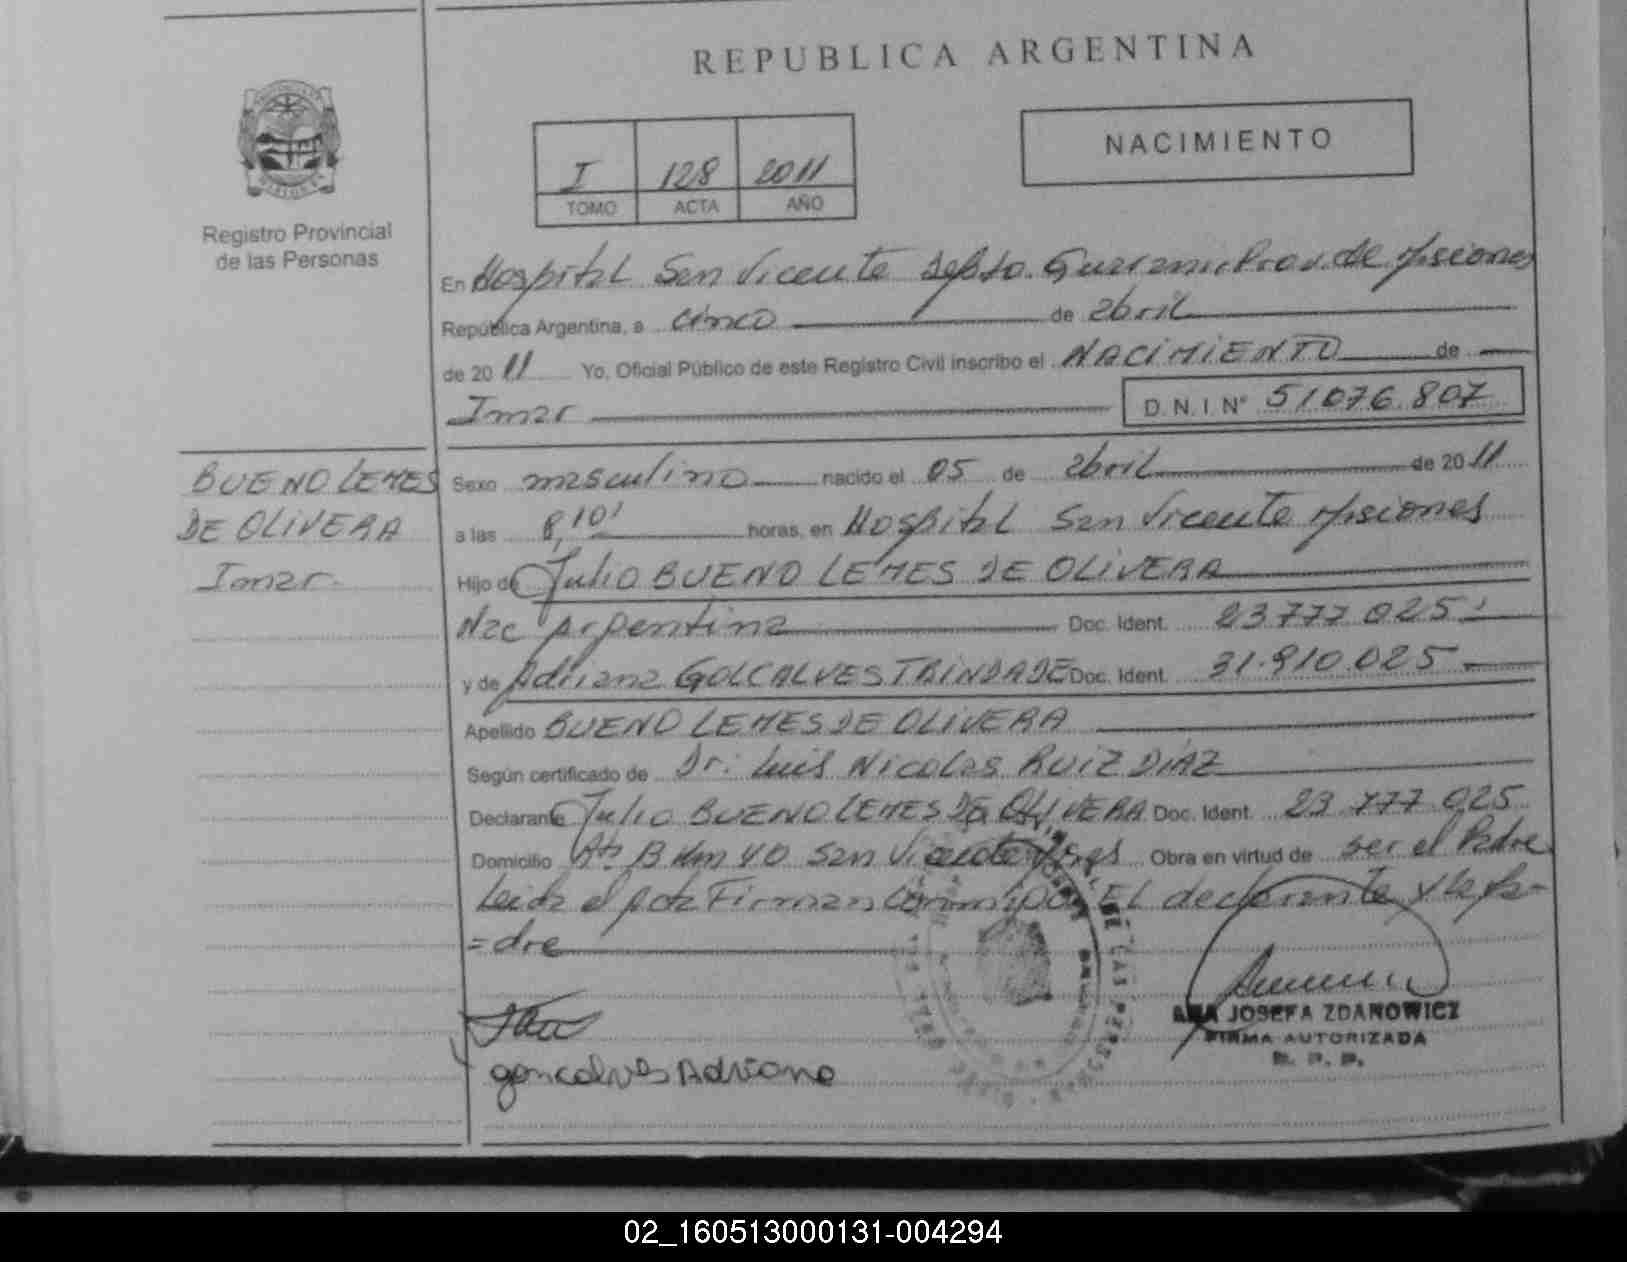 REPUBLICA ARGENTINA
NACIMIENTO
I 128 2011
TOMO ACTA AÑO
Registro Provincial
de las Personas
En Hospital San Vicente Depto. Guarani Prov. de Misiones
República Argentina, a cinco de abril
de 2011 Yo, Oficial Público de este Registro Civil inscribo el NACIMIENTO de
Imar D.N.I.Nº 51076.807
BUENO LEMES
DE OLIVERA
Imar
Sexo masculino nacido el 05 de abril de 2011
a las 8,10' horas, en Hospital San Vicente Misiones
Hijo de Julio BUENO LEMES DE OLIVERA
Nac Argentina Doc. Ident. 23.777.025
y de Adriana GOLCALVES TRINDADE Doc. Ident. 31.910.025
Apellido BUENO LEMES DE OLIVERA
Según certificado de Dr. Luis Nicolas RUIZ DIAZ
Declarante Julio BUENO LEMES DE OLIVERA Doc. Ident. 23.777.025
Domicilio Km 40 San Vicente Obra en virtud de ser el Padre
Leida el Acta Firman conmigo El declarante y la Ma-
=dre
goncalves Adriana
ANA JOSEFA ZDANOWICZ
FIRMA AUTORIZADA
R. P. P.
02_160513000131-004294